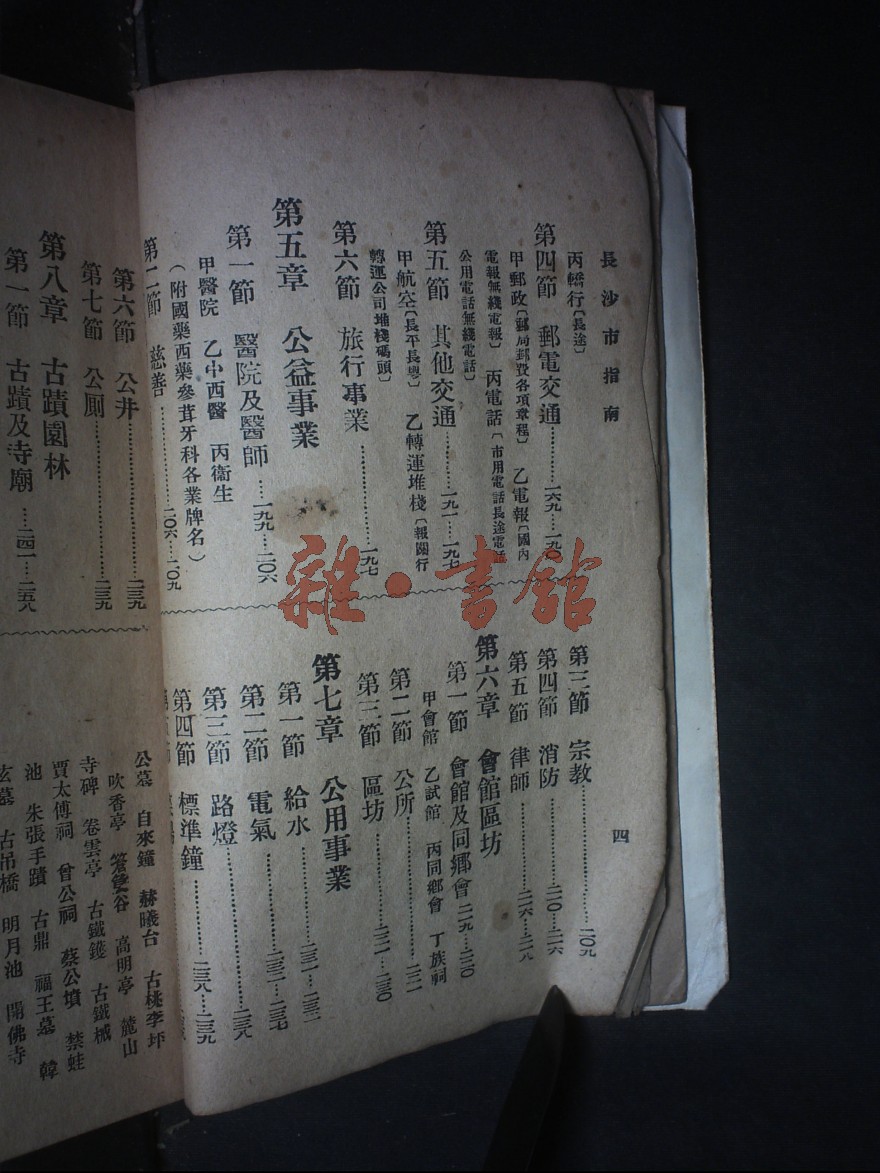 長沙市指南
四
丙轎行〔長途〕
第四節 郵電交通…………一六九…一九〇
甲郵政〔郵局郵費各項章程〕 乙電報〔國內
電報無綫電報〕 丙電話〔市用電話長途電話
公用電話無綫電話〕
第五節 其他交通…………一九一…一九七
甲航空〔長平長粵〕 乙轉運堆棧〔報關行
轉運公司堆棧碼頭〕
第六節 旅行事業…………一九七
第五章 公益事業
第一節 醫院及醫師……一九九…二〇六
甲醫院 乙中西醫 丙衞生
(附國藥西藥參茸牙科各業牌名)
第二節 慈善…………二〇六…一〇九
第三節 宗教…………二〇九
第四節 消防…………二一〇…二一六
第五節 律師…………二一六…二一八
第六章 會館區坊
第一節 會館及同鄉會 二一九…二二〇
甲會館 乙試館 丙同鄉會 丁族祠
第二節 公所…………二二一
第三節 區坊…………二二一…二三〇
第七章 公用事業
第一節 給水…………二三一…二三二
第二節 電氣…………二三二…二三七
第三節 路燈…………二三八
第四節 標準鐘…………二三八…二三九
第六節 公井…………二三九
第七節 公厠…………二三九
第八章 古蹟園林
第一節 古蹟及寺廟……二四一…二五八
公墓 自來鐘 赫曦台 古桃李坪
吹香亭 高明亭 麓山
寺碑 卷雲亭 古鐵鑊 古鐵械
賈太傅祠 曾公祠 蔡公墳 禁蛙
池 朱張手蹟 古鼎 福王墓 韓
玄墓 古吊橋 明月池 開佛寺
雜·書館